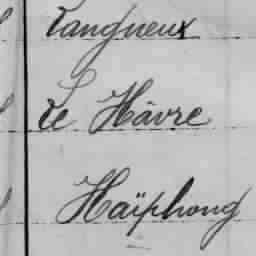 Langueux
Le Hâvre
Haïphong